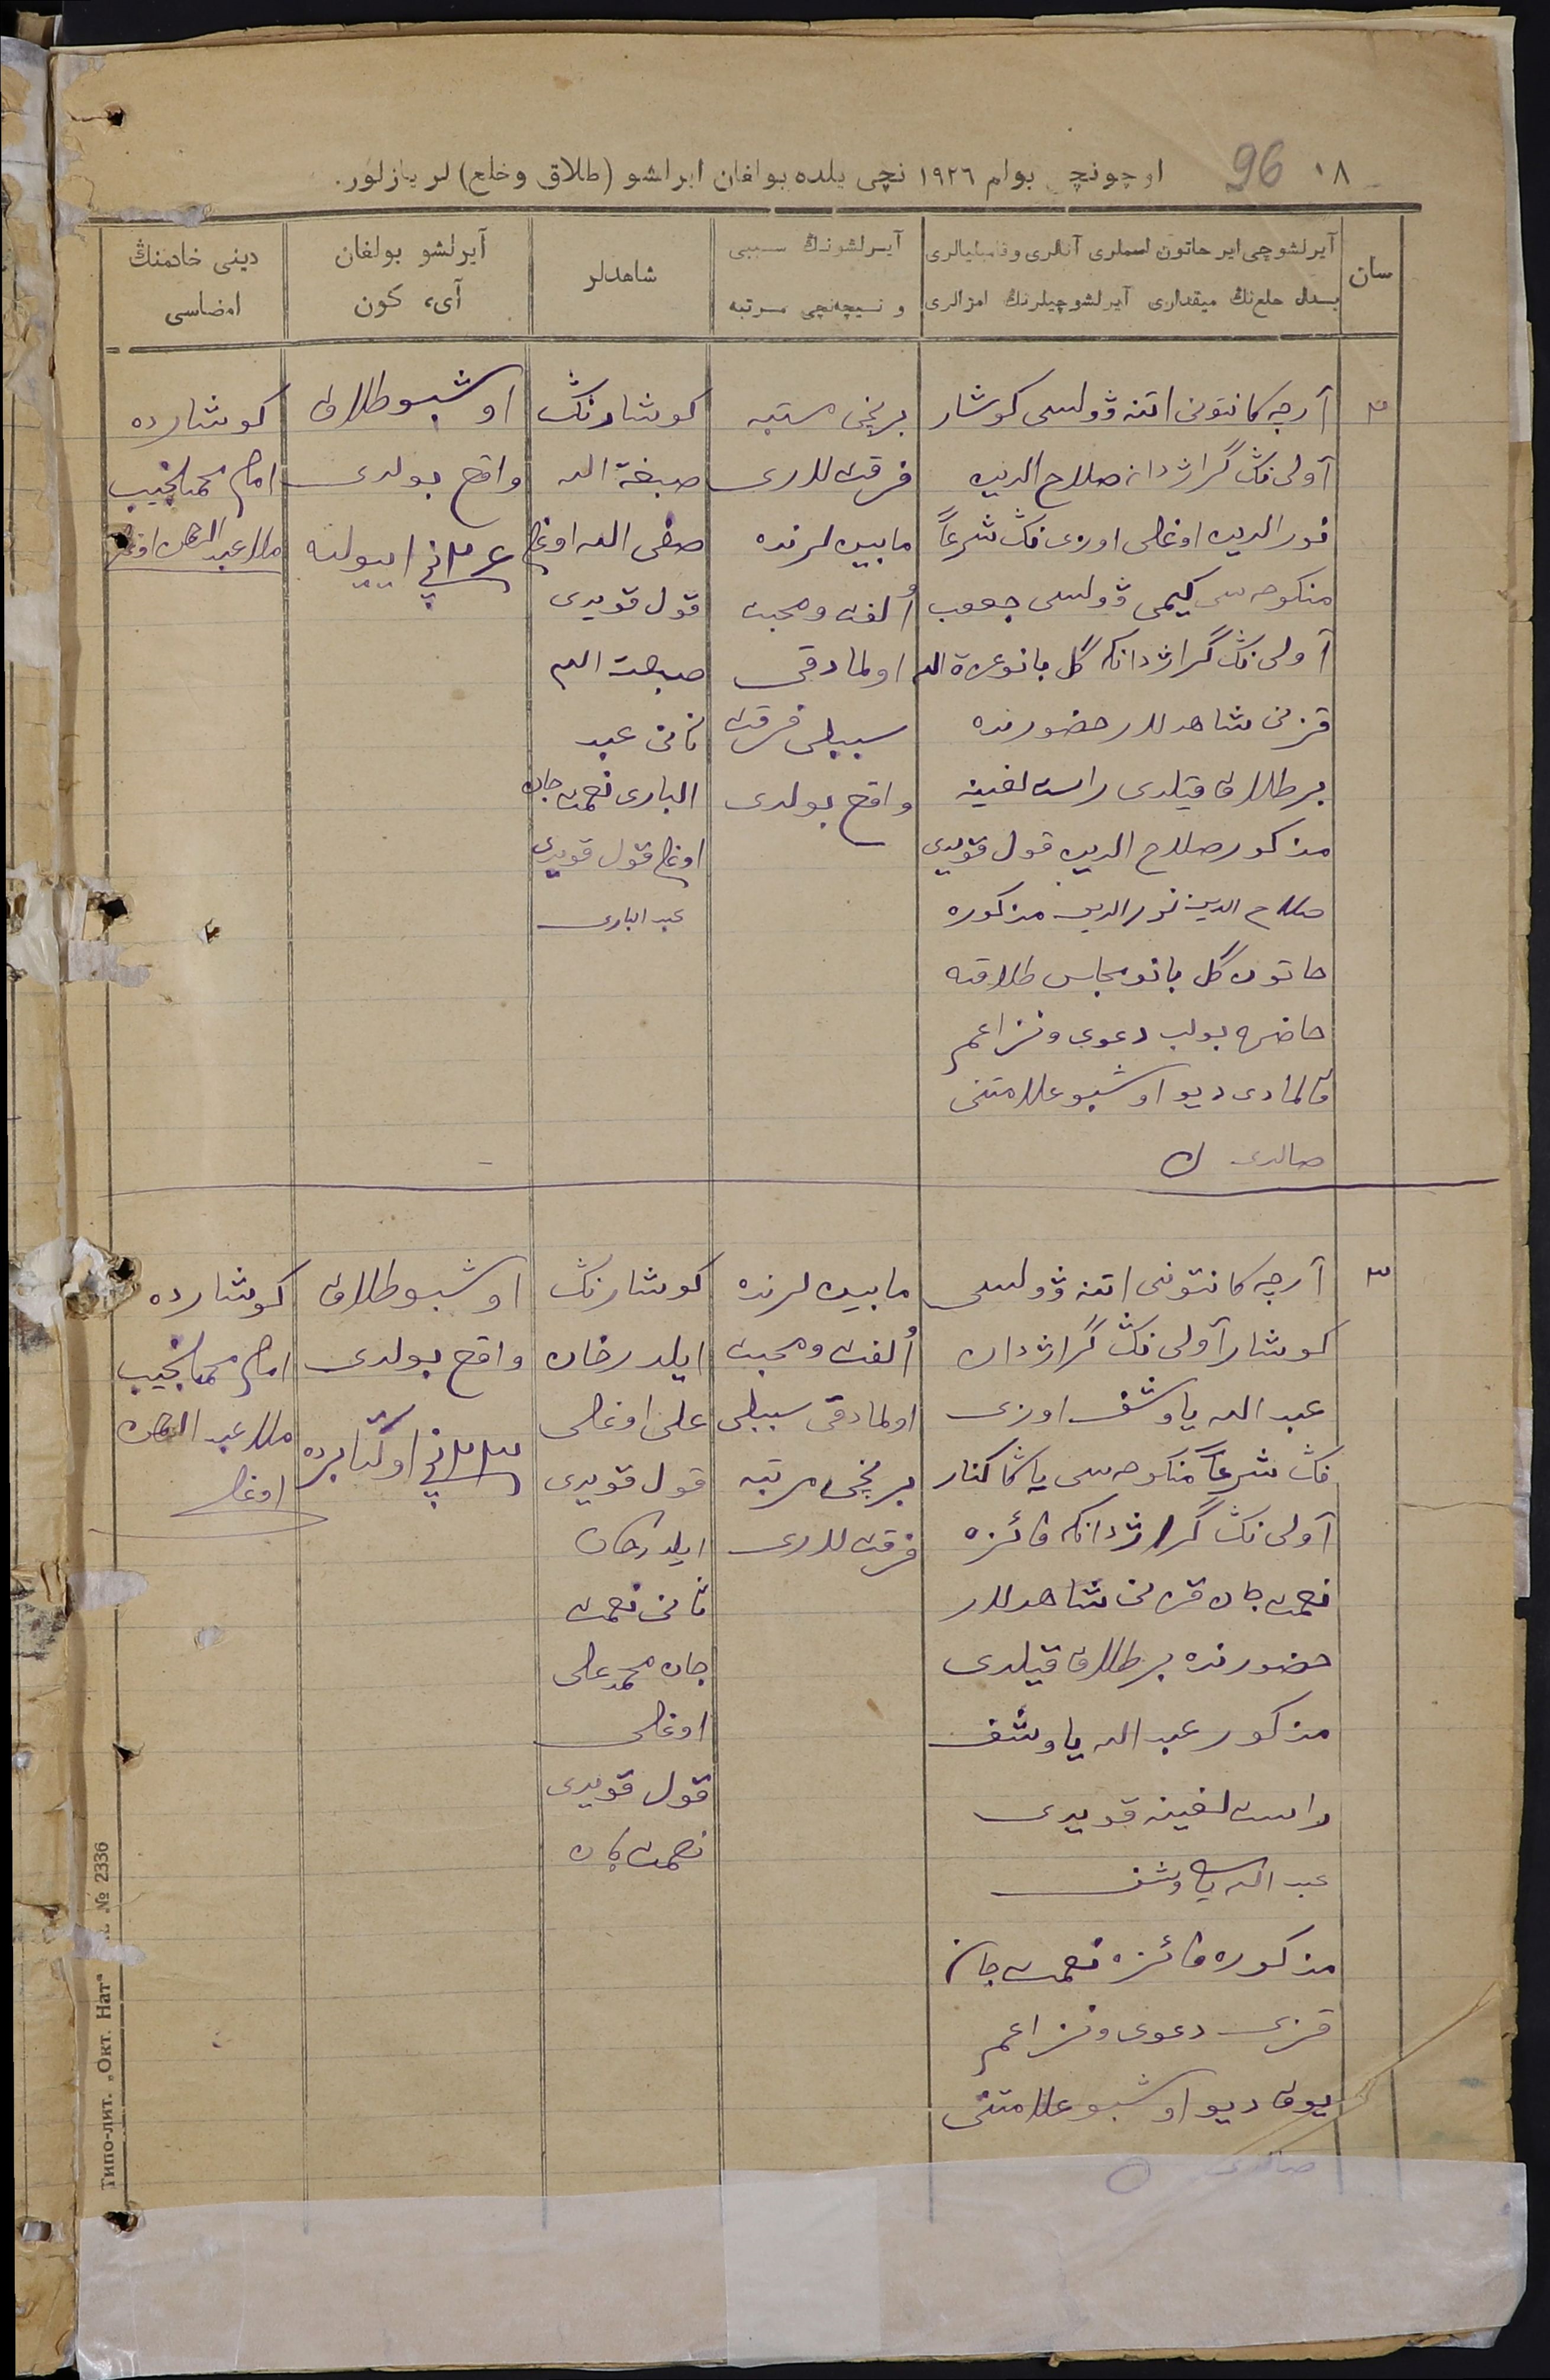 ١٨
96
اوچونچی بوام ١٩٢٦ نچی یلده بولغان ایراشو (طلاق وخلع) لر یازلور.
سان
آیرلشوچی ایر خاتون اسملری آتالری وفامیلیالری
بدل خلع‌نڭ میقداری آیرلشوچیلرنڭ امزالری
آیرلشونڭ سببی
و نیچه‌نچی مرتبه
شاهدلر
آیرلشو بولغان
آی، کون
دینی خادمنڭ
امضاسی
٢
آرچه کانتونی اتنه ڤولسی کوشار
آولی نڭ گراژدان صلاح الدین
نورالدین اوغلی اوزی نڭ شرعاً
منکوحه سی کیمی ڤولسی
آولی نڭ گراژدانکه گل بانو عزة الله
قزنی شاهدلار حضورنده
بر طلاق قیلدی راست لغینه
مذکور صلاح الدین قول قویدی
صلاح الدین نورالدین مذکوره
خاتون گل بانو مجلس طلاقته
حاضره بولب دعوی ونزاعم
قالمادی دیو اوشبو علامتنی
صالدی
برنچی مرتبه
فرقت لاری
مابین لرنده
اُلفت ومحبت
اولمادقی
سببلی فرقت
واقع بولدی
کوشارنڭ
صبغة الله
صفی الله اوغلی
قول قویدی
صبغت الله
ثانی عبد
الباری نعمت جان
اوغلی قول قویدی
عبد الباری
اوشبو طلاق
واقع بولدی
نچی اییولنه
کوشارده
امام محمدنجیب
ملا عبد الرحمان اوغلی
٣
آرچه کانتونی اتنه ڤولسی
کوشار آولی نڭ گراژدان
عبد الله یاوشف اوزی
نڭ شرعاً منکوحه سی یاڭا کنار
آولی نڭ گراژدانکه فائزه
نعمت جان قزنی شاهدلار
حضورنده بر طلاق قیلدی
مذکور عبد الله یاوشف
راست لغینه قویدی
عبد الله یاوشف
مذکوره فائزه نعمت جان
قزی دعوی ونزاعم
یوق دیو اوشبو علامتنی
صالدی
مابین لرنده
اُلفت ومحبت
اولمادقی سببلی
برنچی مرتبه
فرقت لاری
کوشارنڭ
ایلدرخان
علی اوغلی
قول قویدی
ایلدرخان
ثانی نعمت
جان محمد علی
اوغلی
قول قویدی
نعمت جان
اوشبو طلاق
واقع بولدی
نچی اوکتابرده
کوشارده
امام محمدنجیب
ملا عبد الرحمان
اوغلی
Типо-лит. „Окт. Нат“ № 2336